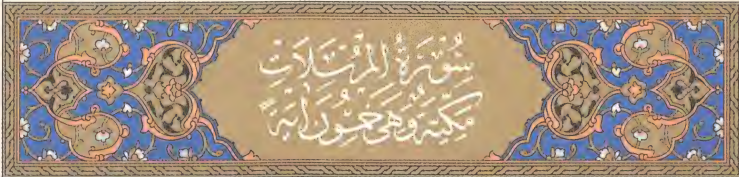 سُورَةُ الْمُرْسَلَاتِ
مَكِّيَّةٌ وَهِيَ خَمْسُونَ آيَةً